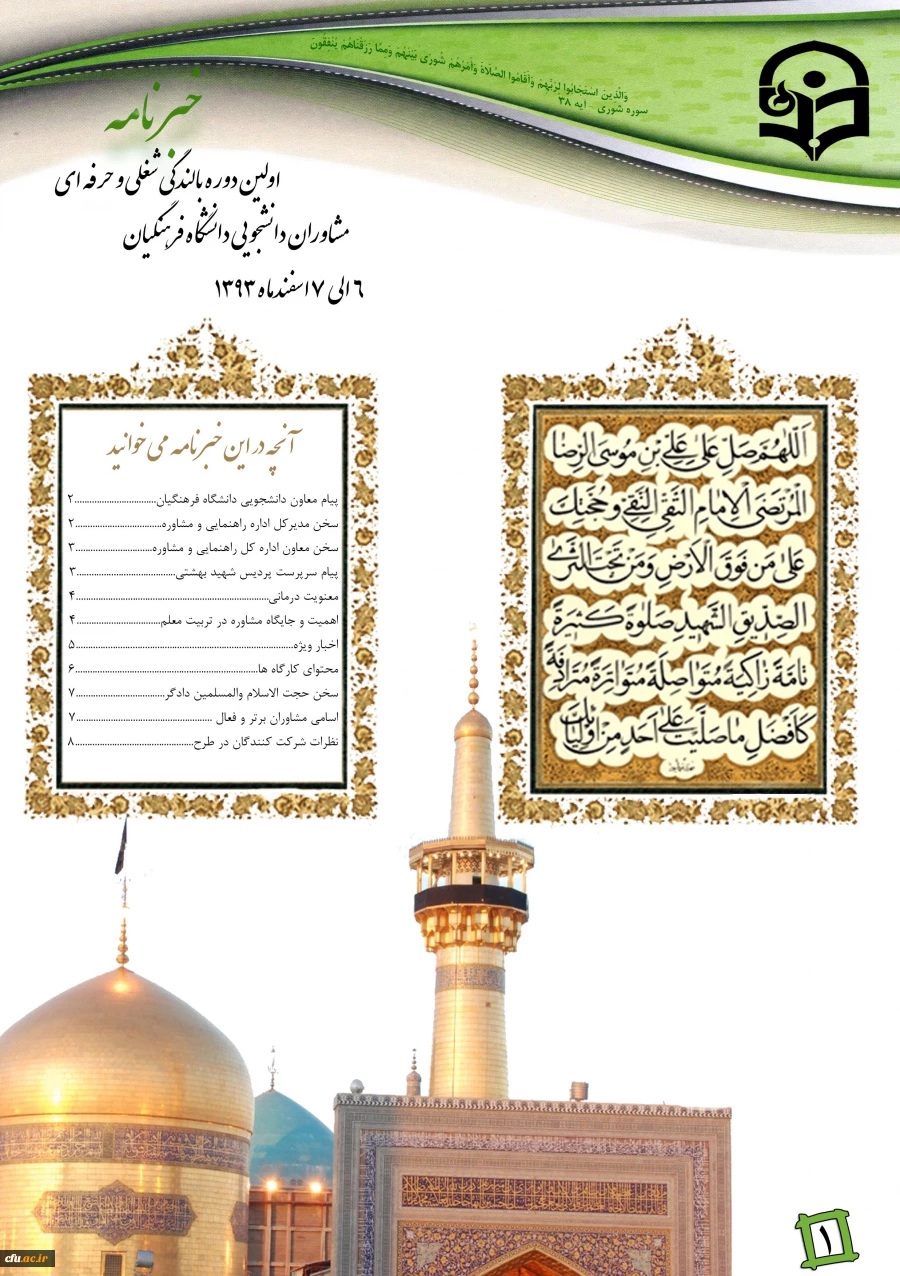 وَالَّذِينَ اسْتَجَابُوا لِرَبِّهِمْ وَأَقَامُوا الصَّلَاةَ وَأَمْرُهُمْ شُورَى بَيْنَهُمْ وَمِمَّا رَزَقْنَاهُمْ يُنْفِقُونَ
سوره شوری - آیه ۳۸
خبرنامه
اولین دوره بالندگی شغلی و حرفه ای
مشاوران دانشجویی دانشگاه فرهنگیان
۶ الی ۷ اسفندماه ۱۳۹۳
اَللّهُمَّ صَلِّ عَلی عَلِیِّ بْنِ مُوسَی الرِّضَا
الْمُرْتَضَی الْاِمامِ التَّقِیِّ النَّقِیِّ وَ حُجَّتِکَ
عَلی مَنْ فَوْقَ الْاَرْضِ وَ مَنْ تَحْتَ الثَّری
الصِّدّیقِ الشَّهیدِ صَلوةً کَثیرَةً
تامَّةً زاکِیَةً مُتَواصِلَةً مُتَواتِرَةً مُتَرادِفَةً
کَاَفْضَلِ ما صَلَّیْتَ عَلی اَحَدٍ مِنْ اَوْلِیائِکَ
آنچه در این خبرنامه می خوانید
پیام معاون دانشجویی دانشگاه فرهنگیان................................۲
سخن مدیرکل اداره راهنمایی و مشاوره..................................۲
سخن معاون اداره کل راهنمایی و مشاوره..............................۳
پیام سرپرست پردیس شهید بهشتی.......................................۳
معنویت درمانی..................................................................۴
اهمیت و جایگاه مشاوره در تربیت معلم.................................۴
اخبار ویژه..........................................................................۵
محتوای کارگاه ها................................................................۶
سخن حجت الاسلام والمسلمین دادگر...................................۷
اسامی مشاوران برتر و فعال ....................................................۷
نظرات شرکت کنندگان در طرح..............................................۸
۱
cfu.ac.ir